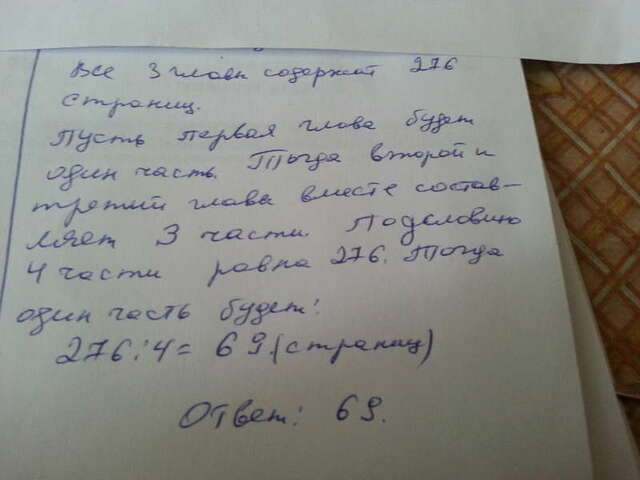 Все 3 главы содержат 276
страниц.
Пусть первая глава будет
один часть. Тогда второй и
третий главы вместе состав-
ляет 3 части. По условию
4 части равна 276. Тогда
один часть будет:
276:4= 69.(страниц)
Ответ: 69.